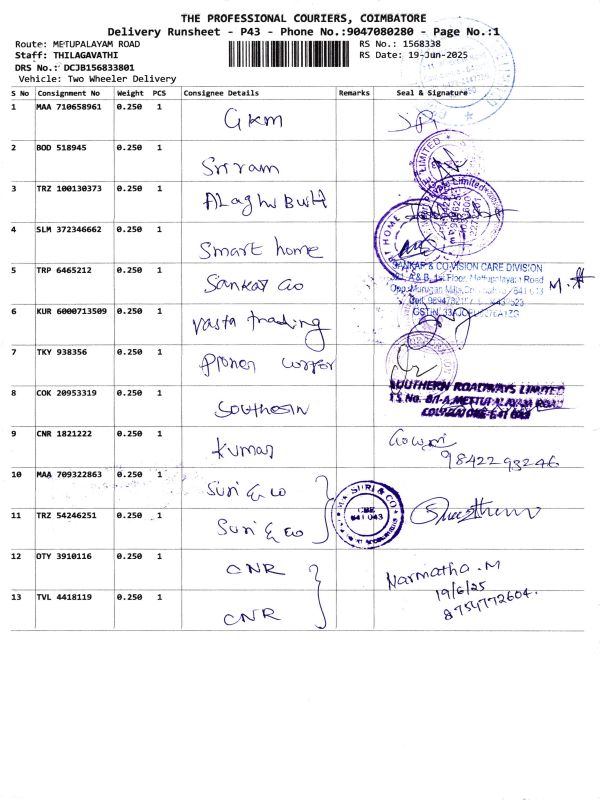 THE PROFESSIONAL COURIERS, COIMBATORE
Delivery Runsheet - P43 - Phone No.:9047080280 - Page No.:1
Route: METUPALAYAM ROAD
RS No.: 1568338
Staff: THILAGAVATHI
RS Date: 19-Jun-2025
DRS No.: DCJB156833801
Vehicle: Two Wheeler Delivery
S No Consignment No Weight PCS Consignee Details Remarks Seal & Signature
1 MAA 710658961 0.250 1 GKM
2 BOD 518945 0.250 1 Sriram
3 TRZ 100130373 0.250 1
4 SLM 372346662 0.250 1 Smart home
5 TRP 6465212 0.250 1 Sankar co
SANKAR & CO VISION CARE DIVISION
M.
6 KUR 6000713509 0.250 1 Vasta trading
7 TKY 938356 0.250 1
8 COK 20953319 0.250 1 Southern
SOUTHERN ROADWAYS LIMITED
T.S No. 8/1-A, METTUPALAYAM ROAD
COIMBATORE-641 043
9 CNR 1821222 0.250 1 Kumar Gowri
9842293246
10 MAA 709322863 0.250 1 Suri & co
SURI & CO
CBE
641 043
11 TRZ 54246251 0.250 1 Suri & co
12 OTY 3910116 0.250 1 CNR
Narmatha.M
19/6/25
8754772604.
13 TVL 4418119 0.250 1 CNR